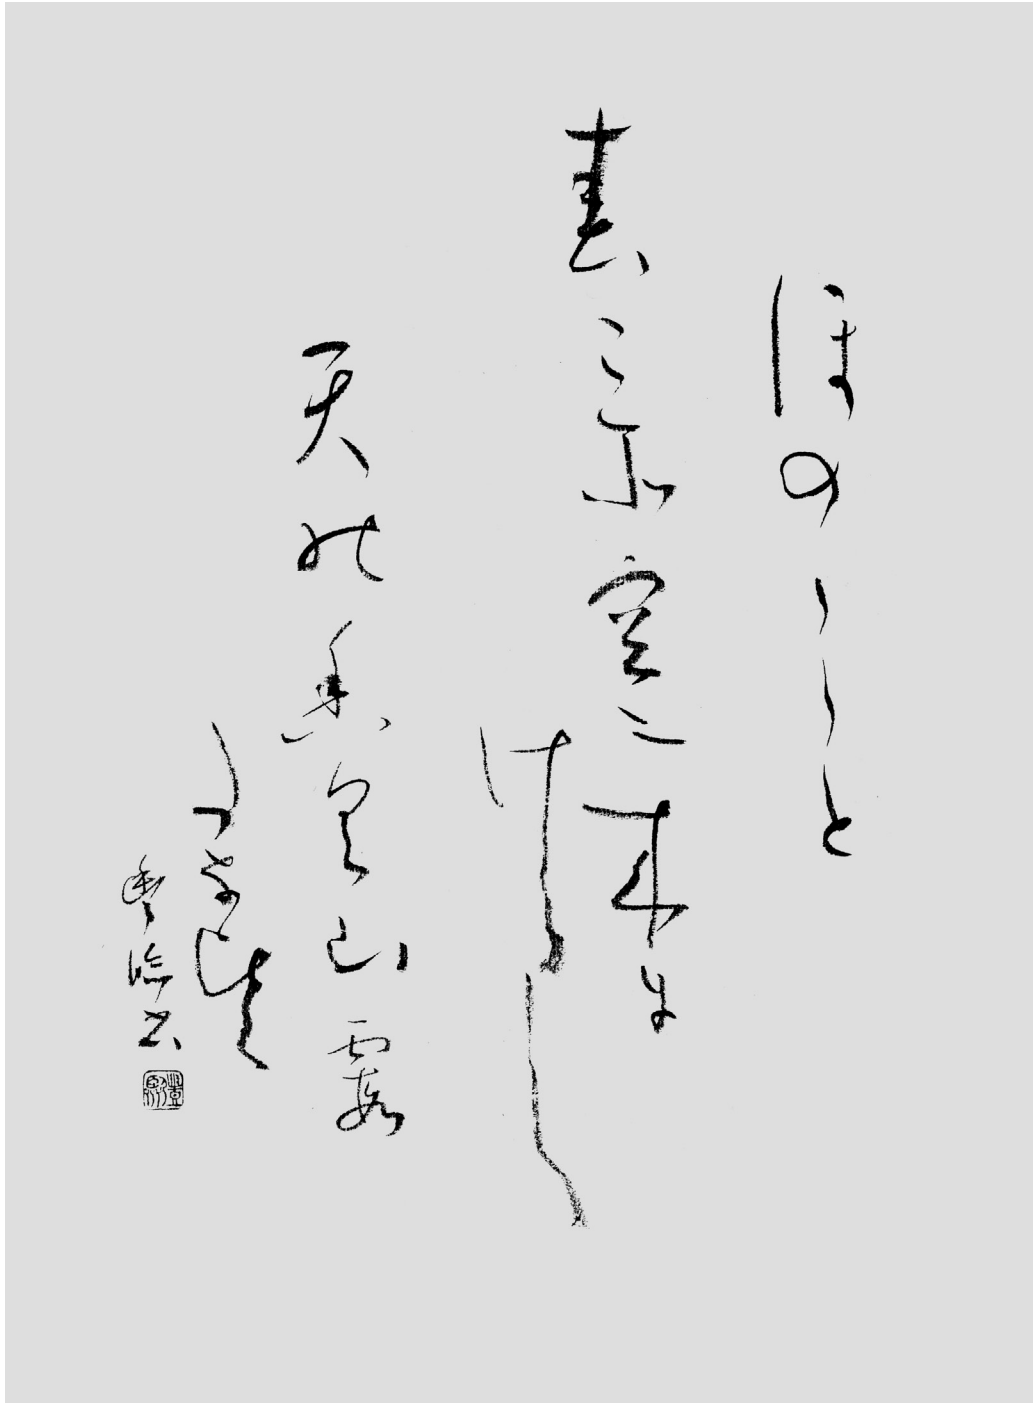 ほの〱と
春こそ空に来に
けらし
天の香具山霞
たなびく
臨書